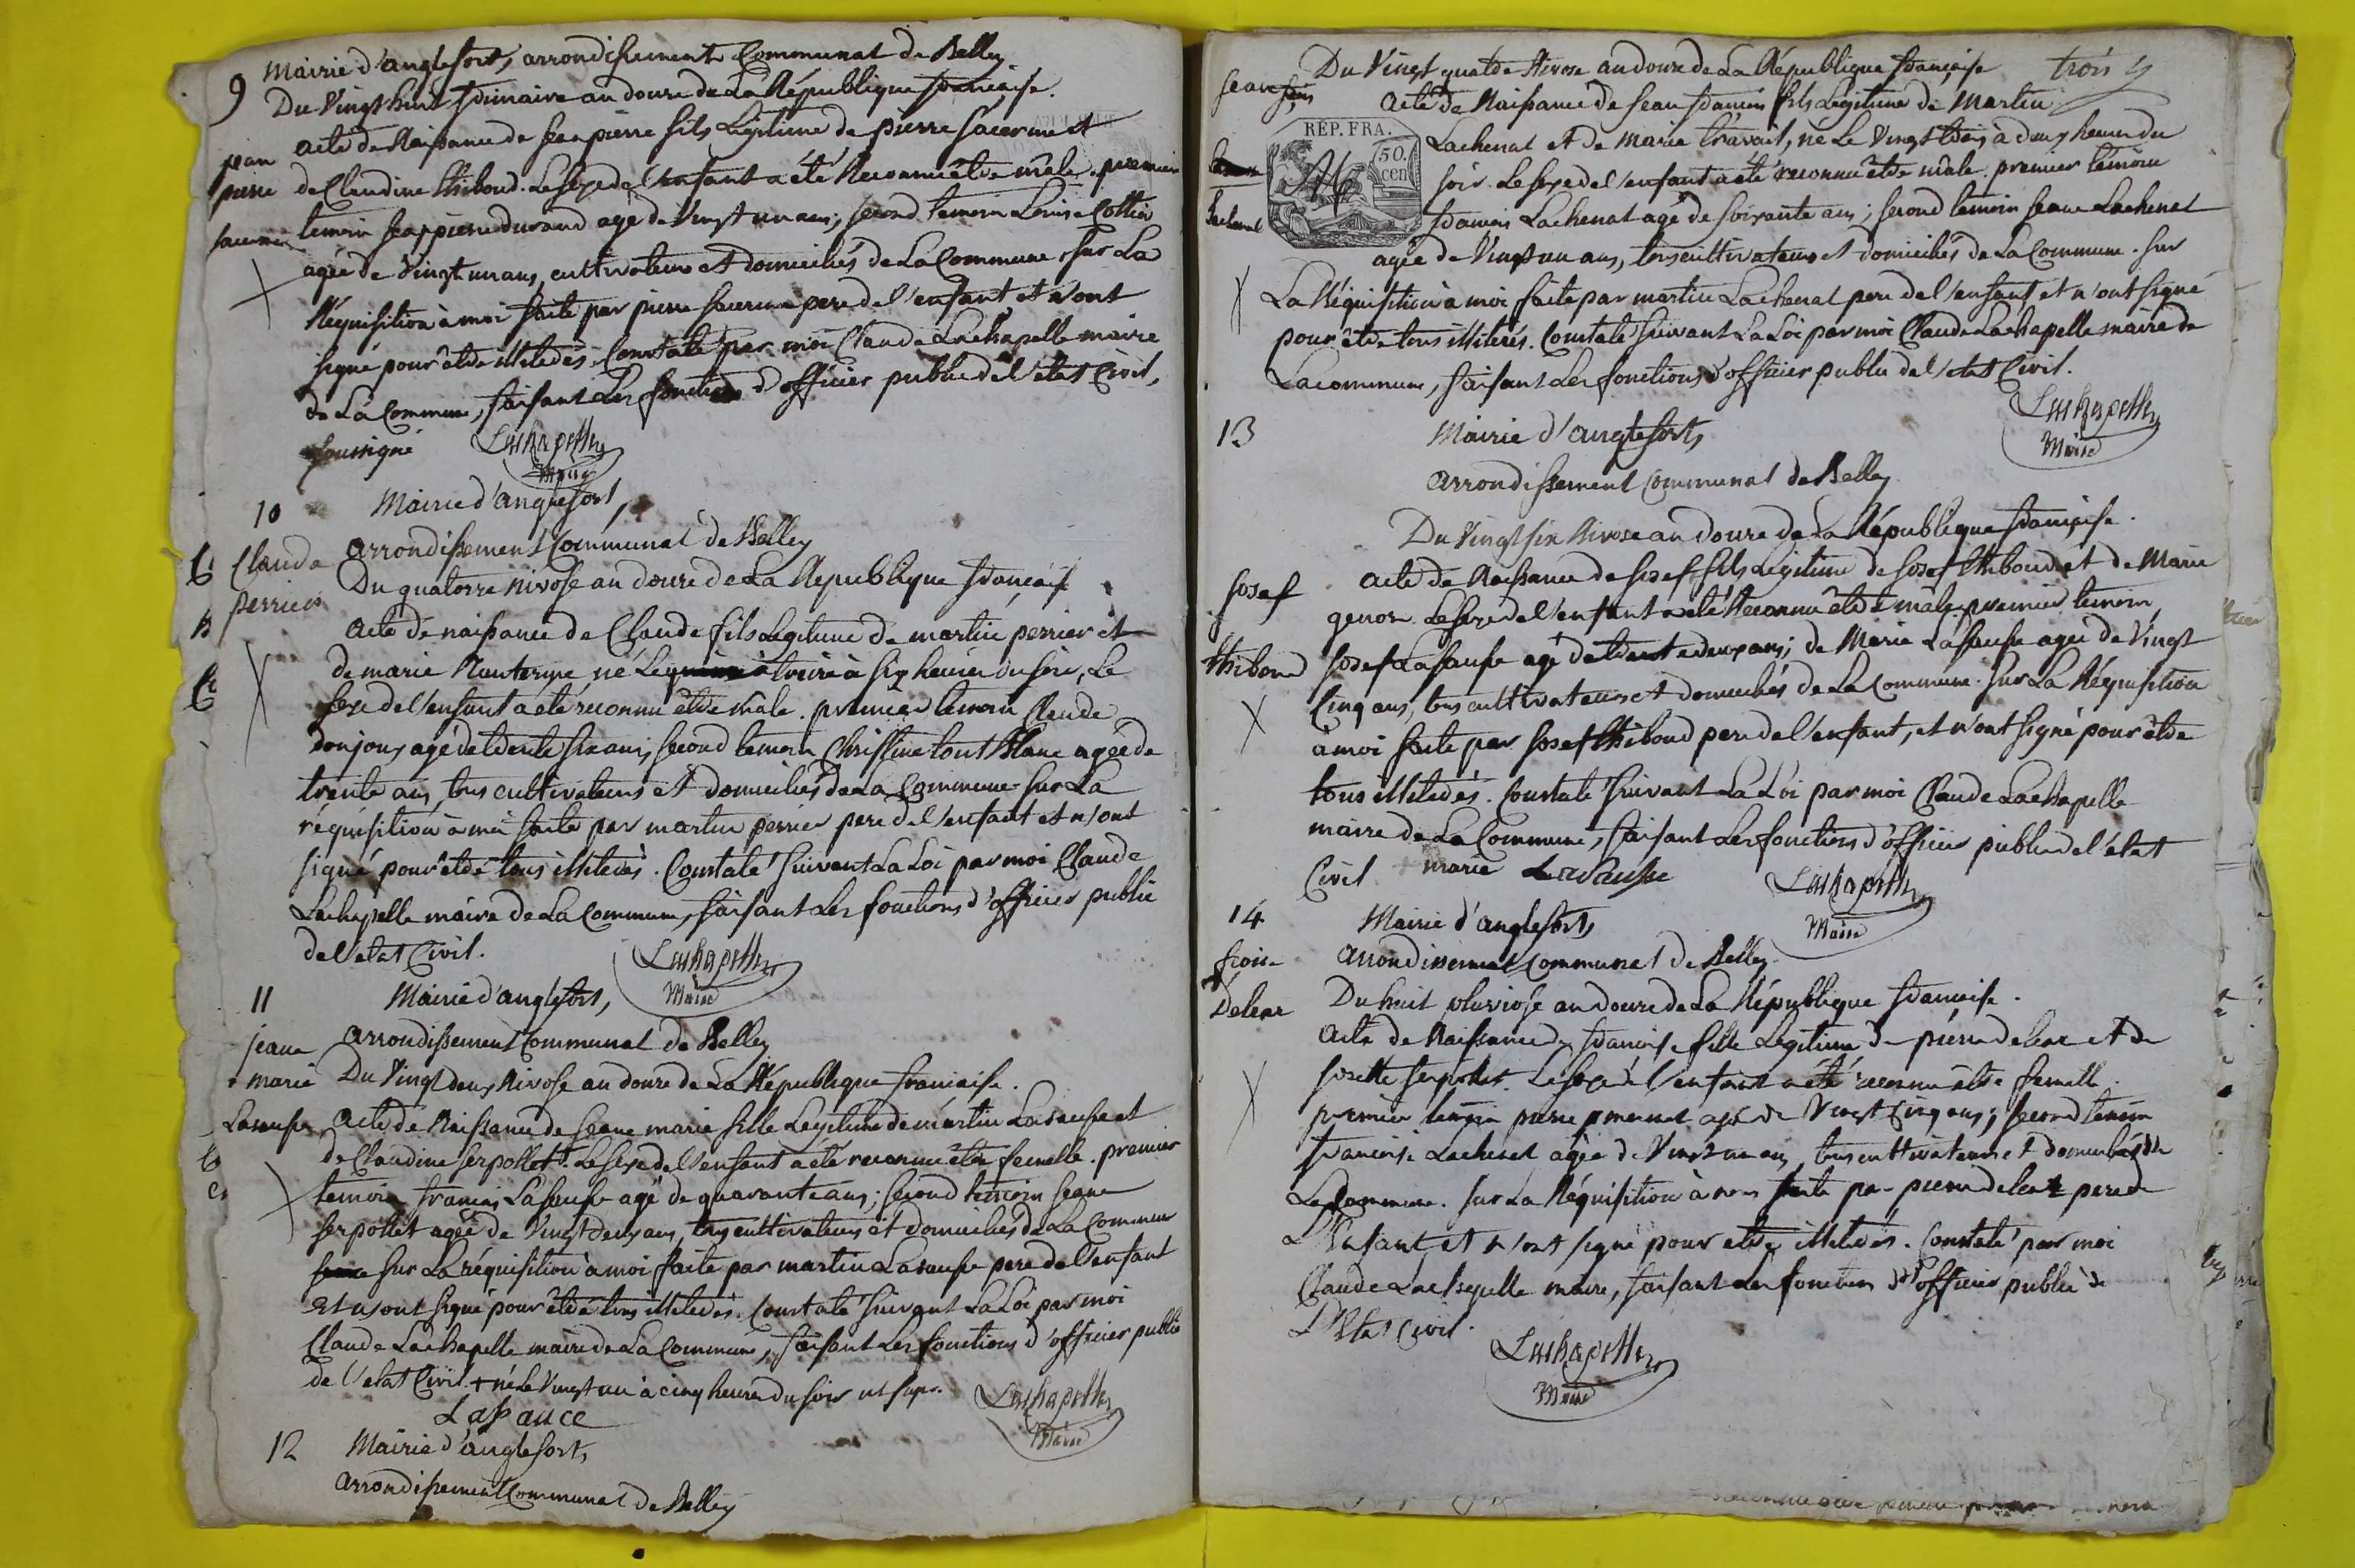 9 Mairie d'anglefort, arrondissement Communal de Belley
Du Vingt huit frimaire an douze de La République française.
acte de Naissance de Jean pierre fils Légitime de pierre Jacerme et
jean
pierre
de Claudine thiboud. Le sexe de l'enfant a été Reconnu être mâle. premier
temoin Jean pierre durand agé de Vingt un ans; second temoin Louise Cottin
agée de Vingt un ans, cultivateurs et domiciliés de La Commune. sur La
Réquisition à moi faite par pierre pere de l'enfant et n'ont
signé pour être illiterés. Constaté par moi Claude Lachapelle maire
de La Commune, faisant Les fonctions d'officier public de l'etat Civil,
soussigné Lachapelle
Maire
10 Mairie d'anglefort,
Claude arrondissement Communal de Belley
perrier Du quatorze nivose an douze de La République française
acte de naissance de Claude fils Légitime de martin perrier et
de marie né Le treize à six heures du soir, Le
sexe de l'enfant a été reconnu être mâle. premier temoin Claude
donjoux agé de trente six ans; second temoin Christine tout Blanc agée de
trente ans, tous cultivateurs et domiciliés de La Commune sur La
réquisition à moi faite par martin perrier pere de l'enfant et n'ont
signé pour être tous illiterés. Constaté suivant La Loi par moi Claude
Lachapelle maire de La Commune, faisant Les fonctions d'officier public
de l'etat Civil. Lachapelle
Maire
11 Mairie d'anglefort,
jeane arrondissement Communal de Belley
marie Du Vingt deux Nivose an douze de La République française.
Lasausse acte de Naissance de Jeane marie fille Légitime de martin Lasausse et
de Claudine serpollet +. Le sexe de l'enfant a été reconnu être femelle. premier
temoin françois Lasausse agé de quarante ans; second temoin Jeane
serpollet agée de Vingt deux ans, tous cultivateurs et domiciliés de La Commune
sur La réquisition à moi faite par martin Lasausse pere de l'enfant
Et n'ont signé pour être tous illiterés. Constaté suivant La Loi par moi
Claude Lachapelle maire de La Commune, faisant Les fonctions d'officier public
de l'etat Civil. + né Le Vingt un à cinq heures du soir ut supr. Lachapelle
Maire
Lasauce
12 Mairie d'anglefort,
arrondissement Communal de Belley
Du Vingt quatre Nivose an douze de La République française trois
acte de Naissance de Jean françois fils Légitime de Martin
REP. FRA.
50.
cen
Lachenal et de Marie travail, né Le Vingt trois à deux heures du
soir. Le sexe de l'enfant a été reconnu être mâle. premier temoin
Lachenal
françois Lachenal agé de soixante ans; second temoin Jeane Lachenal
agée de Vingt un ans, tous cultivateurs et domiciliés de La Commune. sur
La Réquisition à moi faite par martin Lachenal pere de l'enfant et n'ont signé
pour être tous illiterés. Constaté suivant La Loi par moi Claude Lachapelle maire de
La commune, faisant Les fonctions d'officier public de l'etat Civil.
Lachapelle
Maire
13 Mairie d'anglefort,
arrondissement Communal de Belley
Du Vingt six Nivose an douze de La République française.
Josef acte de Naissance de Josef fils Légitime de Josef thiboud et de Marie
genon. Le sexe de l'enfant a été Reconnu être mâle. premier temoin
thiboud Josef Lasausse agé de trente deux ans; de Marie Lasausse agée de Vingt
Cinq ans, tous cultivateurs et domiciliés de La Commune. sur La Réquisition
à moi faite par Josef thiboud pere de l'enfant, et n'ont signé pour être
tous illiterés. Constaté suivant La Loi par moi Claude Lachapelle
maire de La Commune, faisant Les fonctions d'officier public de l'état
Civil marie Lasausse Lachapelle
Maire
14 Mairie d'anglefort,
arrondissement Communal de Belley
Deleaz Du huit pluviose an douze de La République française.
acte de Naissance de françoise fille Légitime de pierre deleaz et de
Josette serpollet. Le sexe de l'enfant a été reconnu être femelle.
premier temoin pierre agé de Vingt Cinq ans; second temoin
françoise Lachenal agée de Vingt un ans, tous cultivateurs et domiciliés de
La Commune. sur La Réquisition à moi faite par pierre deleaz pere de
L'Enfant, et n'ont signé pour etre illiterés. Constaté par moi
Claude Lachapelle maire, faisant Les fonctions d'officier public de
L'Etat Civil.
Lachapelle
Maire